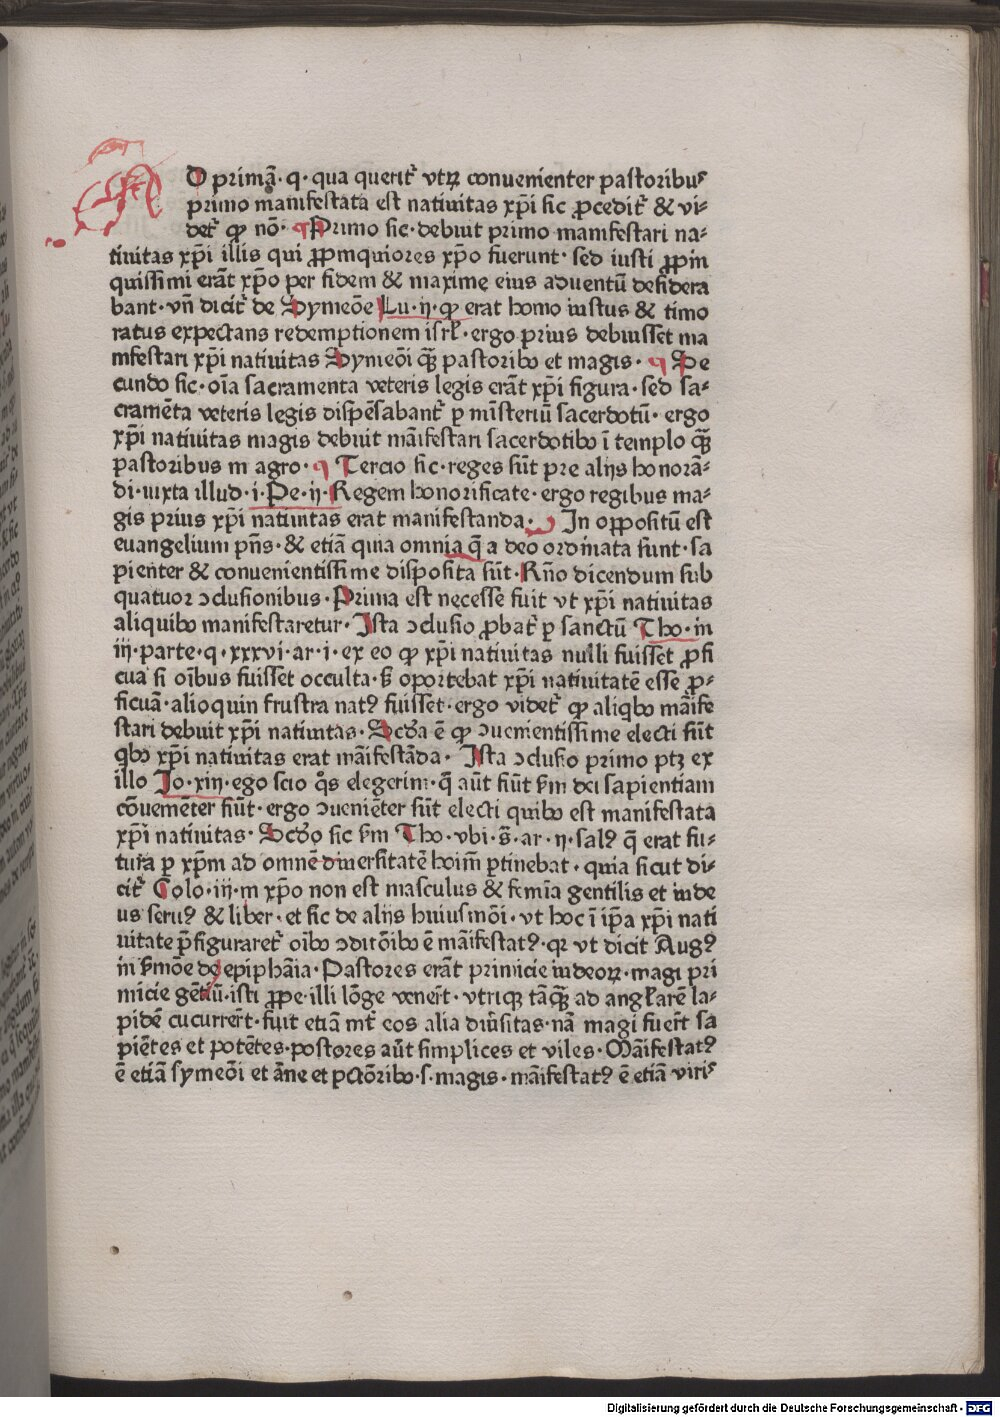 AD primā· q· qua querit᷑ vtꝝ conuenienter pastoribus
primo manifestata est natiuitas xp̄i sic ꝓcedit᷑ & vi-
det᷑ ꝙ nō· ¶ Primo sic· debuit primo manifestari na-
tiuitas xp̄i illis qui ꝓpinquiores xp̄o fuerunt· sed iusti ꝓpin
quissimi erāt xp̄o per fidem & maxime eius aduentū desidera
bant· vñ dicit᷑ de Symeōe Lu· ij· ꝙ erat homo iustus & timo
ratus expectans redemptionem isrł· ergo prius debuisset ma
nifestari xp̄i natiuitas Symeōi q̄ꝫ pastoribꝰ et magis· ¶ Se
cundo sic· oīa sacramenta veteris legis erāt xp̄i figura· sed sa-
cramēta veteris legis dispēsabant᷑ ꝑ mīsteriū sacerdotū· ergo
xp̄i natiuitas magis debuit māifestari sacerdotibꝰ ī templo q̄ꝫ
pastoribus in agro· ¶ Tercio sic· reges sūt pre alijs honorā-
di· iuxta illud· i· Pe· ij· Regem honorificate· ergo regibus ma-
gis prius xp̄i natiuitas erat manifestanda· In oppositū est
euangelium pn̄s· & etiā quia omnia q̄ a deo ordinata sunt· sa
pienter & conuenientissime disposita sūt· Rn̄o dicendum sub
quatuor ɔclusionibus· Prima est necesse fuit vt xp̄i natiuitas
aliquibꝰ manifestaretur· Ista ɔclusio ꝓbat᷑ ꝑ sanctū Tho· in
iij· parte· q· xxxvi· ar· i· ex eo ꝙ xp̄i natiuitas nulli fuisset ꝓfi
cua si oībus fuisset occulta· s̄ oportebat xp̄i natiuitatē esse ꝓ-
ficuā· alioquin frustra natꝰ fuisset· ergo videt᷑ ꝙ aliqbꝰ māife
stari debuit xp̄i natiuitas· Scd̄a ē ꝙ ɔuenientissime electi sūt
qbꝰ xp̄i natiuitas erat māifestāda· Ista ɔclusio primo ptꝫ ex
illo Io· xiij· ego scio q̊s elegerim· q̄ aūt siūt s̄m dei sapientiam
cōueniēter siūt· ergo ɔueniēter sūt electi quibꝰ est manifestata
xp̄i natiuitas· Scd̄o sic s̄m Tho· vbi· s̄· ar· ij· salꝰ q̄ erat fu-
tura ꝑ xp̄m ad omnē diuersitatē hoīm ꝑtinebat· quia sicut di-
cit᷑ Colo· iij· in xp̄o non est masculus & femīa gentilis et iude
us seruꝰ & liber· et sic de alijs huiusmōi· vt hoc ī ip̄a xp̄i nati
uitate p̄figuraret᷑ oībꝰ ɔditōibꝰ ē māifestatꝰ· qr vt dicit Augꝰ
in s̄mōe de epiphāia· Pastores erāt primicie iudeoꝝ· magi pri
micie gētiū· isti ꝓpe· illi lōge venert᷑· vtriqꝫ tāq̄ꝫ ad angłarē la-
pidē cucurrert᷑· fuit etiā int᷑ eos alia diūsitas· nā magi fuert᷑ sa
piētes et potētes· postores aūt simplices et viles· Māifestatꝰ
ē etiā symeōi et āne et pctōribꝰ· s· magis· māifestatꝰ ē etiā viris
Digitalisierung gefördert durch die Deutsche Forschungsgemeinschaft · DFG